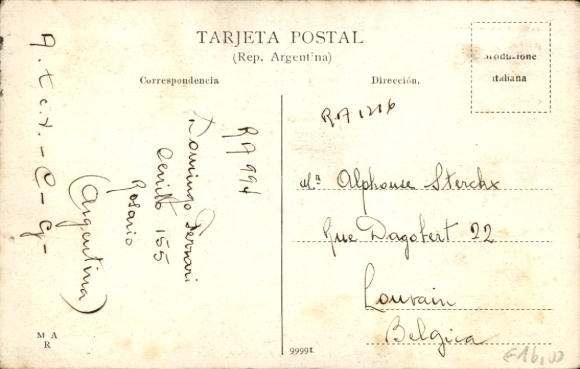 TARJETA POSTAL
(Rep. Argentina)
Correspondencia
Dirección.
produzione
italiana
A.t.c.x.-C-G-
RA994
Domingo Ferrari
Cerrito 155
Rosario
(Argentina)
RA1216
Mr Alphonse Sterckx
Rue Dagobert 22
Louvain
Belgica
M A
R
9999I.
€16,00